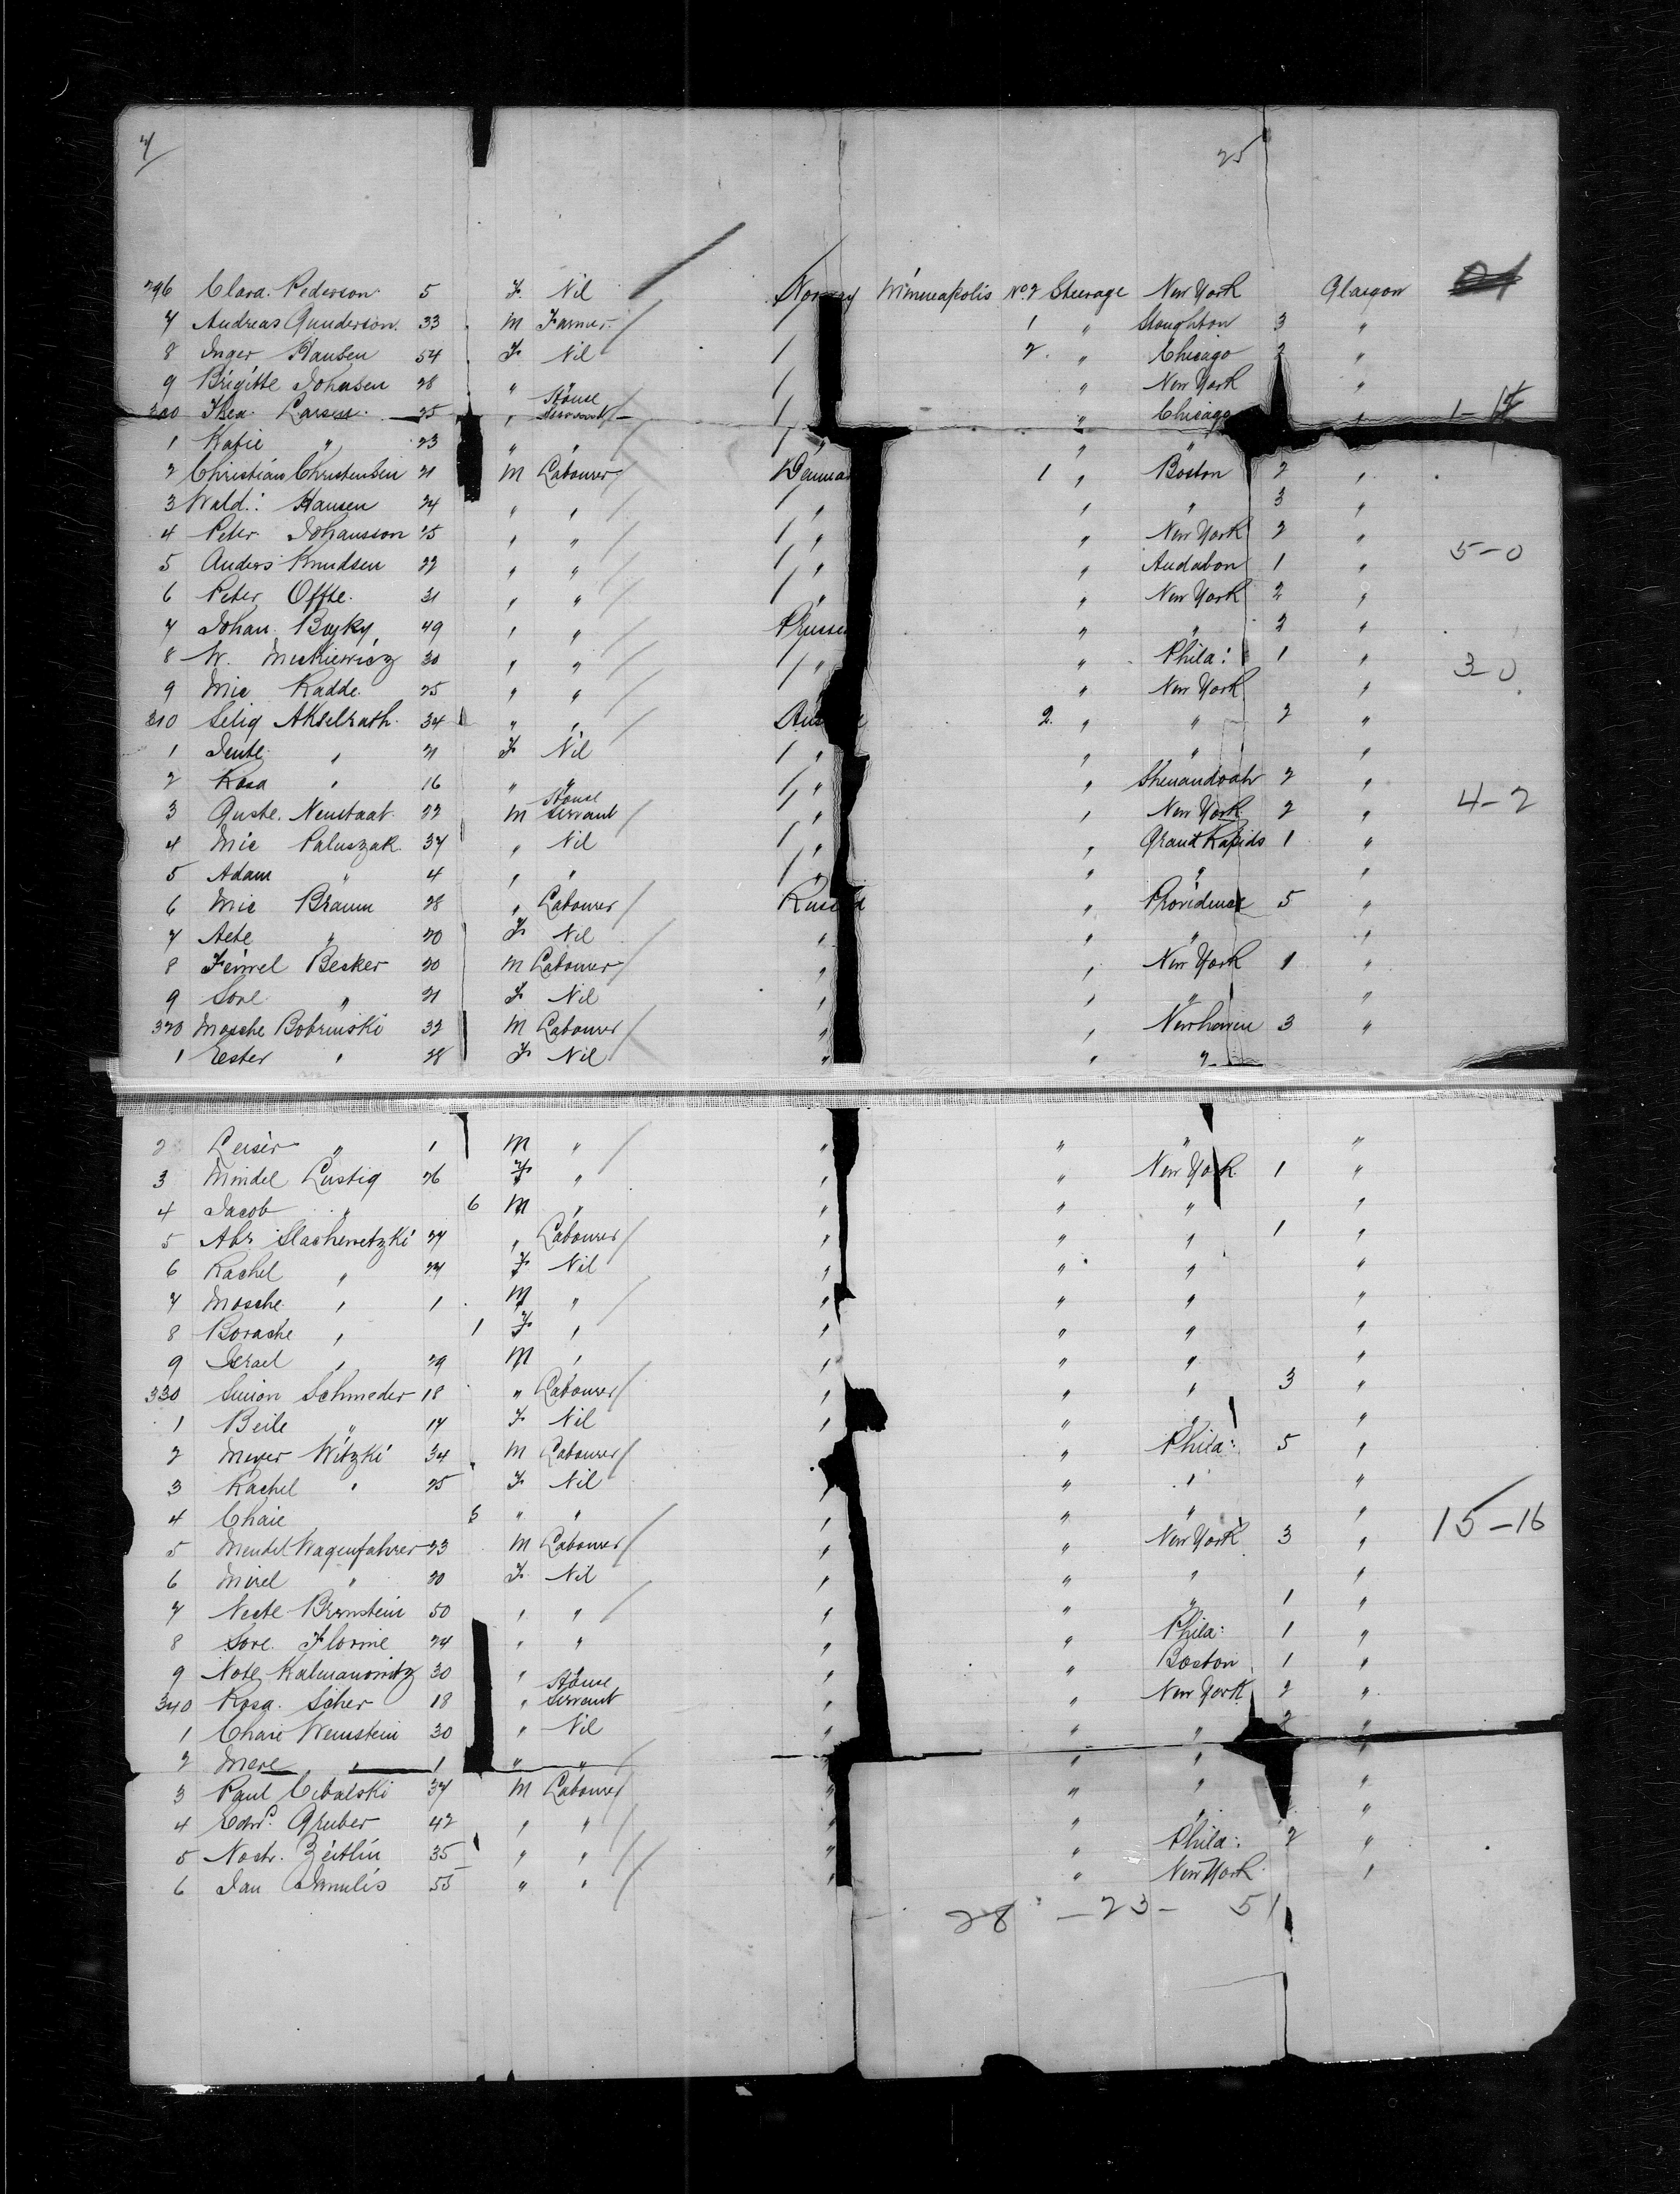 7 25
296 Clara Pederson 5 F Nil Norway Minneapolis No. 2 Steerage New York Glasgow
7 Andreas Gunderson 33 M Farmer 1 " Stoughton 3 "
8 Inger Hansen 54 F Nil 2 " Chicago 2 "
9 Brigitte Johnsen 28 " " New York "
300 Thea Larsen 25 " House Servant " Chicago " 1-15
1 Katie " 23 " " " " "
2 Christian Christensen 21 M Labourer Denmar 1 " Boston 2 "
3 Wald: Hansen 24 " " " " " 3 "
4 Peter Johansson 25 " " " " New York 2 "
5 Anders Knudsen 22 " " " " Audabon 1 " 5-0
6 Peter Offte 31 " " " " New York 2 "
7 Johan 49 " " Prussi " " 2 "
8 W. Mickiewicz 30 " " " " Phila: 1 " 3-0
9 Mic Radde 25 " " " New York "
310 Selig Akselrath 34 " " Aus 2 " " 2 "
1 " 21 F Nil " " " "
2 Rosa " 16 " " " " Shenandoah 2 "
3 Guste Neustaat 22 M House Servant " " New York 2 " 4-2
4 Mic Paluszak 37 " Nil " " Grand Rapids 1 "
5 Adam " 4 " " " " " "
6 Mic Braun 28 " Labourer Russia " Providence 5 "
7 " 20 F Nil " " " "
8 Becker 20 M Labourer " " New York 1 "
9 Sore " 21 F Nil " " " "
320 Mosche Bobrinski 32 M Labourer " " Newhaven 3 "
1 Ester " 28 F Nil " " "
2 Leiser " 1 M " " " " "
3 Mindel Lustig 26 F " " " New York 1 "
4 Jacob " 6 M " " " " "
5 Abr Slachewetzki 27 " Labourer " " " 1 "
6 Rachel " 24 F Nil " " " "
7 Mosche " 1 M " " " " "
8 Borache " 1 F " " " " "
9 Israel " 29 M " " " " "
330 Simon Schmeder 18 " Labourer " " " 3 "
1 Beile " 17 F Nil " " " "
2 Meyer Witzki 34 M Labourer " Phila: 5 "
3 Rachel " 25 F Nil " " " "
4 Chaie " " " " " "
5 Mendel Wagenfahrer 23 M Labourer " " New York 3 " 15-16
6 Mirel " 20 F Nil " " " "
7 Neche Bernstein 50 " " " " " 1 "
8 Sore Florine 24 " " " " Phila: 1 "
9 Note Kalmanowitz 30 " " " Boston 1 "
340 Rosa Scher 18 " House Servant " " New York 2 "
1 Chaie Weinstein 30 " Nil " " " 2 "
2 Mere " 1 " " " " "
3 Paul Cibalski 37 M Labourer " " " "
4 Edwd. Gruber 42 " " " " "
5 Zeitlin 35 " " " " Phila: 2 "
6 Jan 55 " " " " New York "
28 - 23 - 51